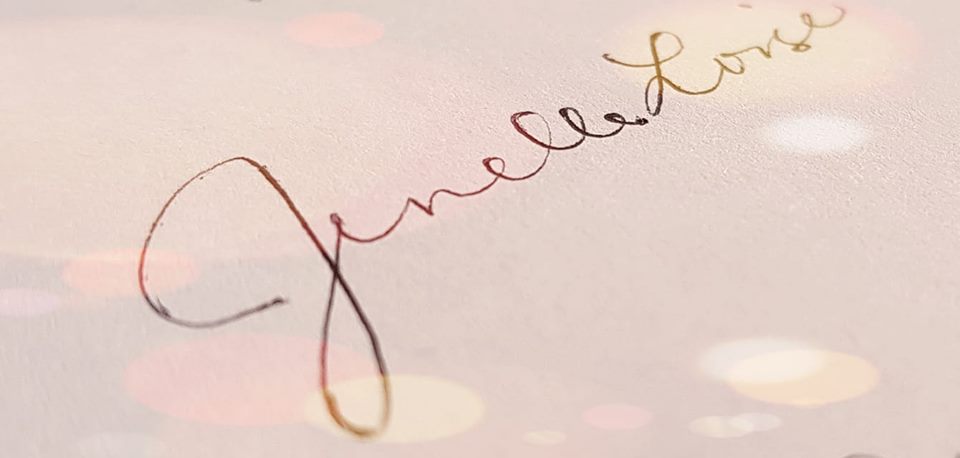 Jenelle Loise